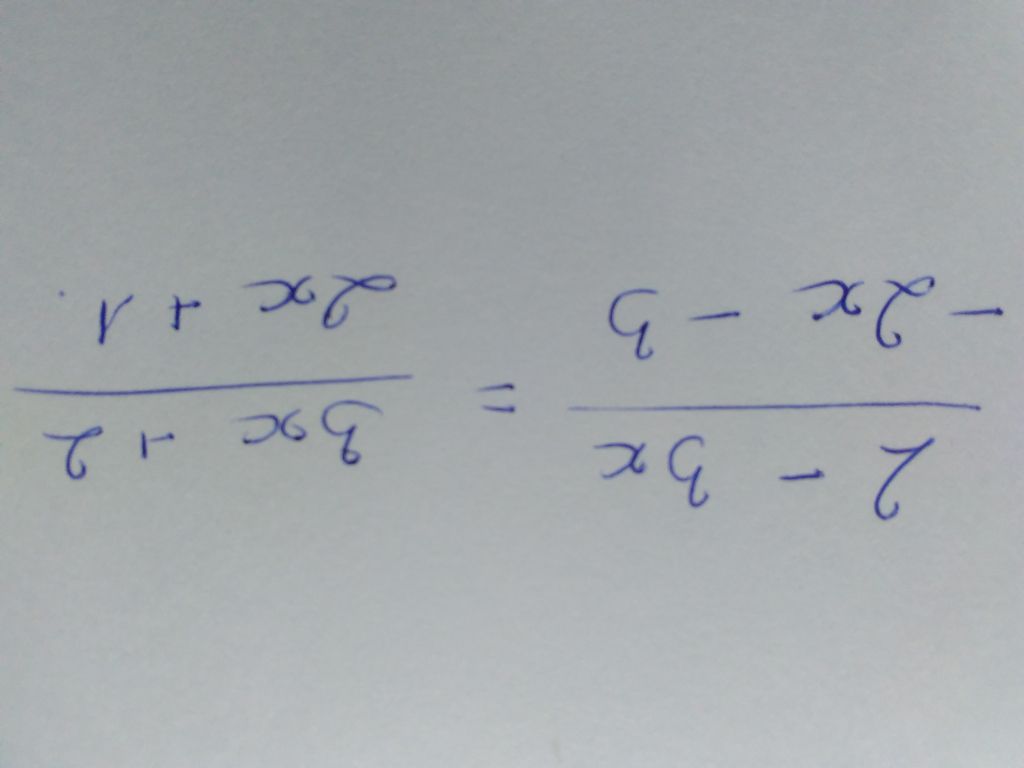 2 - 3x / -2x - 3 = 3x + 2 / 2x + 1